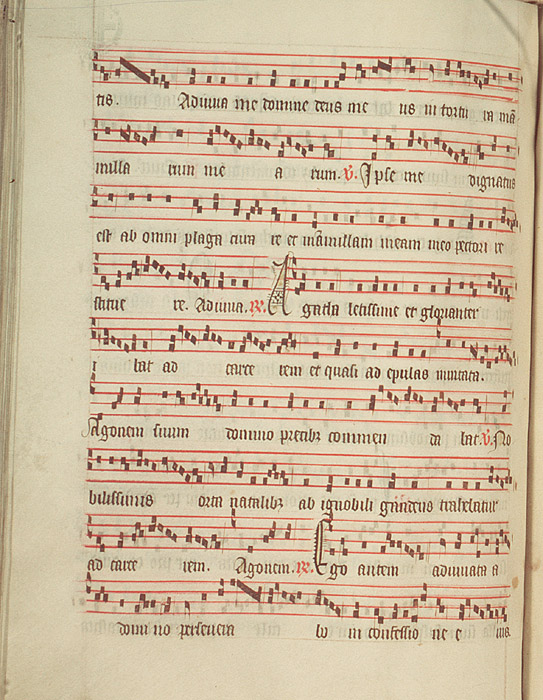 tis. Adiuua me domine deus me us in tortu ra mā
milla rum me a rum. V. Ipse me dignatus
est ab omni plaga cura re et māmillam meam meo pectori re
stitue re. Adiuua. R. Agatha letissime et glorianter
bat ad carce rem et quasi ad epulas inuitata.
Agonem suum domino precibz commen da bat. V. No
bilissimis orta natalibz ab ignobili gaudens trahebatur
ad carce rem. Agonem. R. Ego autem adiuuata a
domino perseuera bo in confessio ne e ius